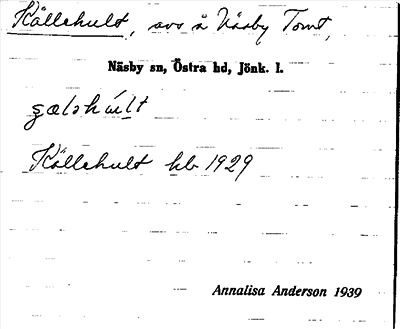 Källehult, avs å Näsby Tomt,
Näsby sn, Östra hd, Jönk. l.
Källehult hb 1929
Annalisa Anderson 1939